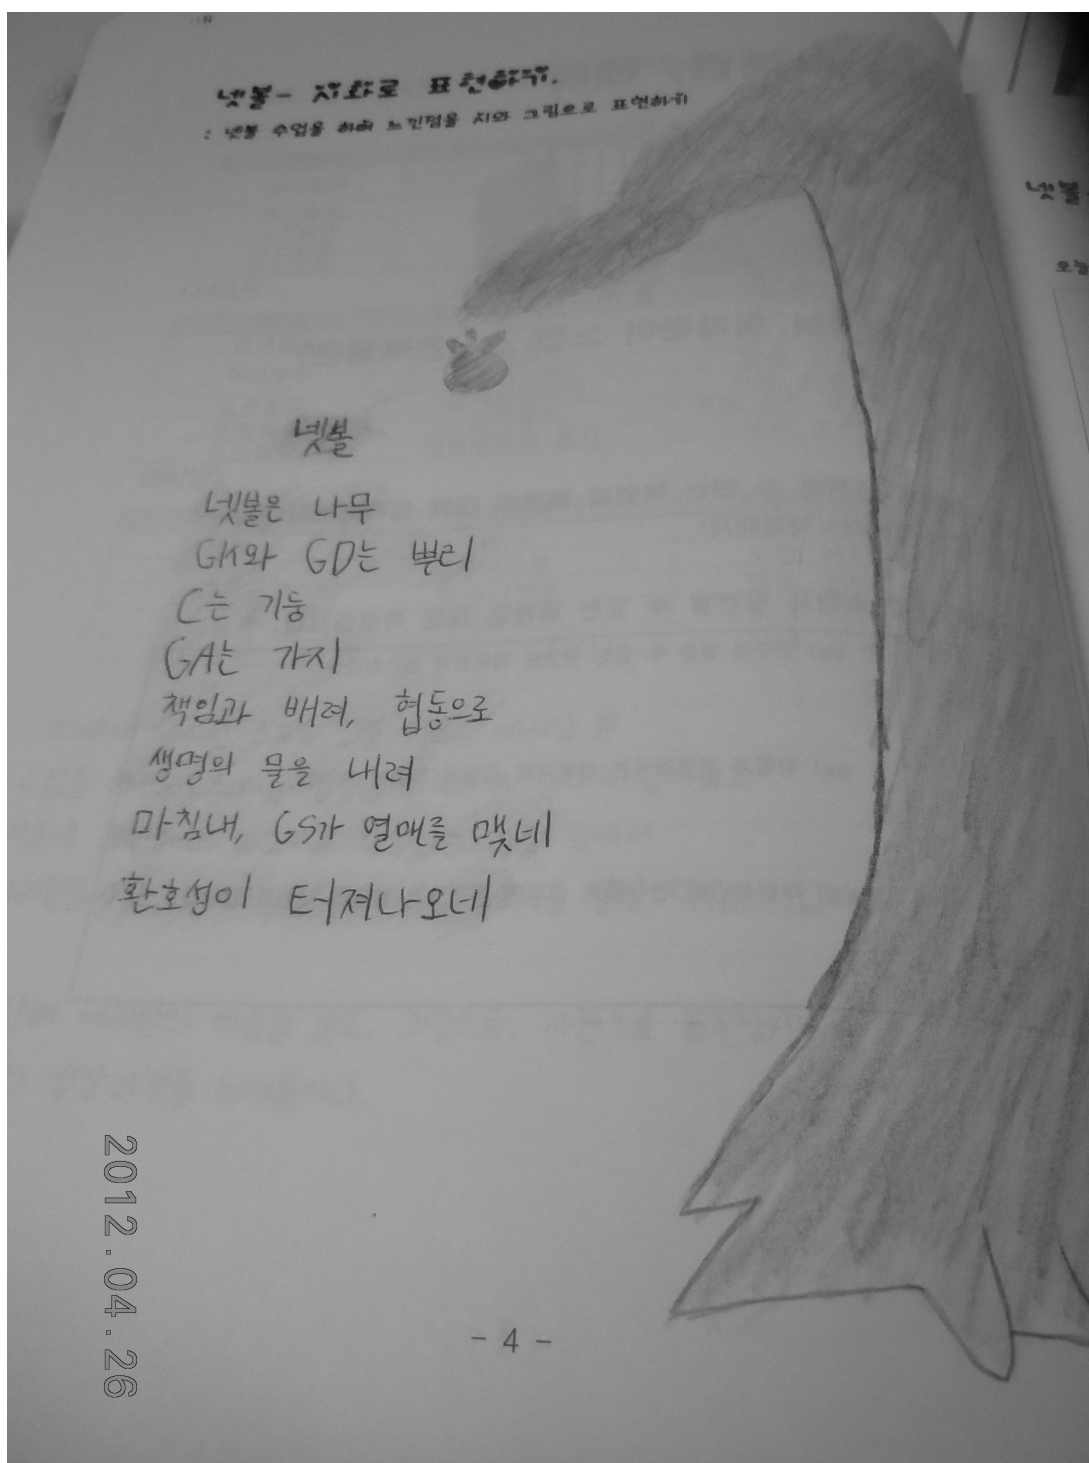 넷볼- 시화로 표현하기.
: 넷볼 수업을 하며 느낀점을 시와 그림으로 표현하기
넷볼
넷볼은 나무
GK와 GD는 뿌리
C는 기둥
GA는 가지
책임과 배려, 협동으로
생명의 물을 내려
마침내, GS가 열매를 맺네
환호성이 터져나오네
- 4 -
2012.04.26
넷볼
오늘